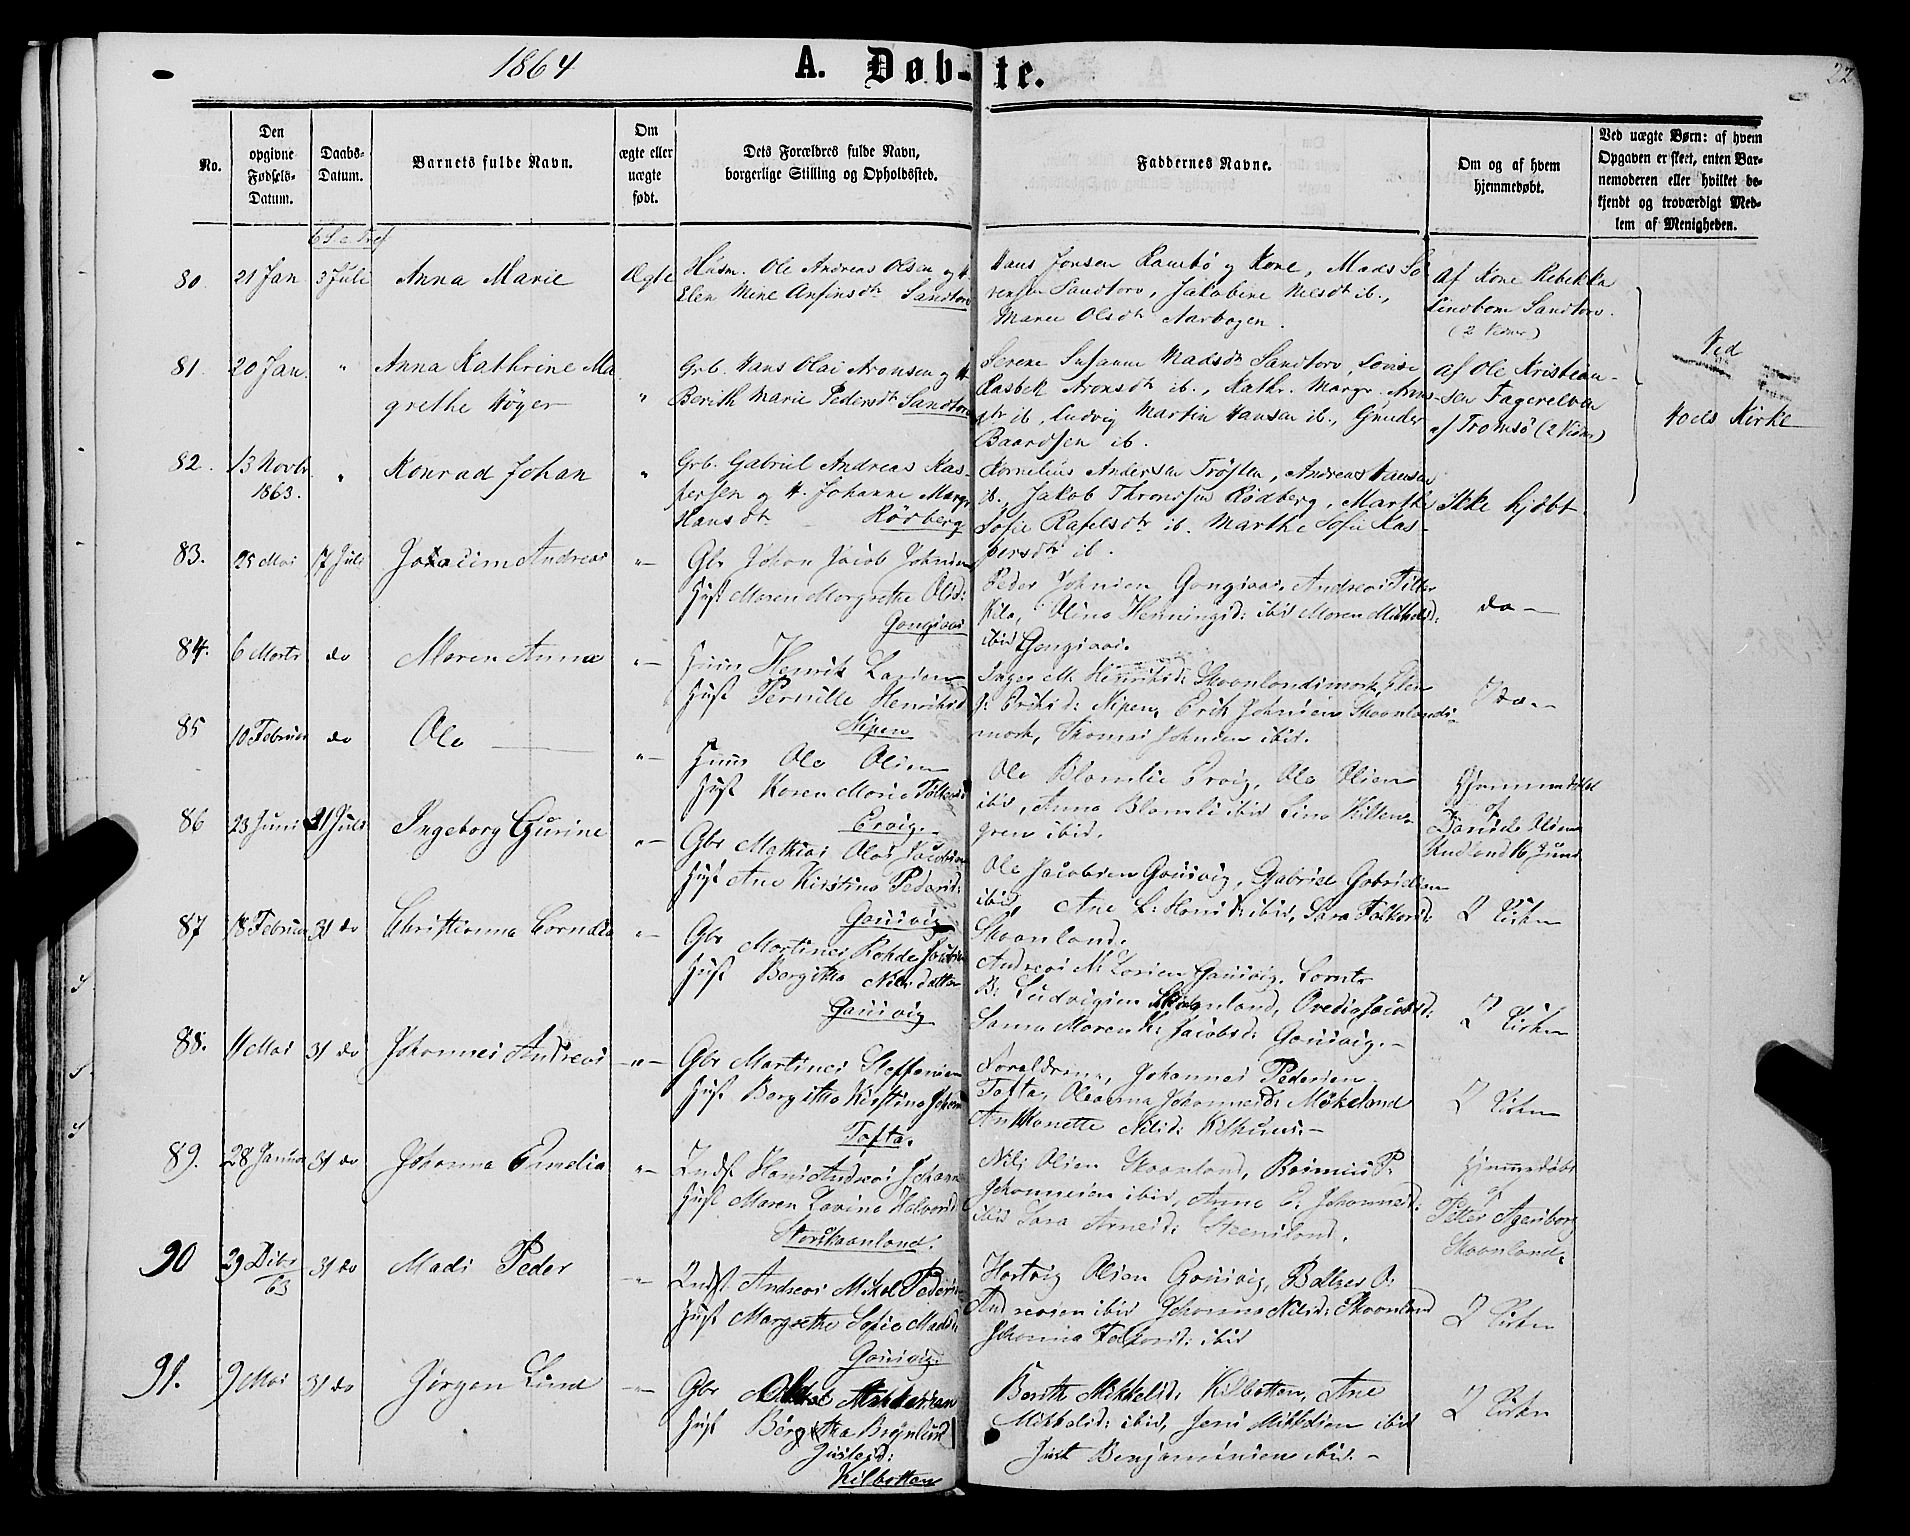 1864
A. Døb-te.
22
No.
Den opgivne Fødsels-Datum.
Daabs-Datum.
Barnets fulde Navn.
Om ægte eller uægte født.
Dets Forældres fulde Navn, borgerlige Stilling og Opholdssted.
Faddernes Navne.
Om og af hvem hjemmedøbt.
Ved uægte Børn: af hvem Opgaven er skeet, enten Barnemoderen eller hvilket bekjendt og troværdigt Medlem af Menigheden.
6 S e Tref
80. 21 Jan 3 Juli Anna Marie Ægte
Husm. Ole Andreas Olsen og H.
Elen Mine Anfinsdtr Sandtorv
Hans Jonsen Rambø og Kone, Mads Sø
rensen Sandtorv, Jakobine Nilsdt ib.,
Maren Olsdt Aarbogen.
Af Kone Rebekka
Lindbom Sandtorv.
(2 Vidner)
81. 20 Jan. " Anna Kathrine Ma
grethe Höyer "
Grb. Hans Olai Aronsen og H
Berith Marie Pedersdt Sandtorv
Serene Susanne Madsdt Sandtorv, Lovise
Kasbek Aronsdt ib., Kathr. Margr. Arons-
dtr ib, Ludvig Martin Hansen ib., Gunder
Baardsen ib.
af Ole Kristian-
sen Fagerelven
af Tromsö (2 Vidn)
Ved
Hols Kirke
82. 13 Novbr 1863. " Konrad Johan "
Grb. Gabriel Andreas Kas-
persen og H. Johanne Margr.
Hansdtr Rödberg
Kornelius Andersen Tröften, Andreas Hansen
ib., Jakob Thronsen Rödberg, Marthe
Sofie Rafelsdtr ib. Marthe Sofie Kas-
persdtr ib.
Ikke hjdbt.
83. 25 Mai 17 Juli Joacim Andreas "
Gbr Johan Jacob Johnsen
Hust Maren Margrethe Olsd:
Gangsaas
Peder Johnsen Gangsaas, Andreas Fitter
Kila, Olina Henningsd: ibid Maren Mikkelsd:
ibid Gangsaas.
do
84. 6 Marts do Maren Anna "
Huus Henrik Larsen
Hust Pernille Henriksd
Nipen
Inger M. Henriksd: Skaanlandsmark, Elen
J: Eriksd: Nipen, Erik Johnsen Skaanlands-
mark, Thomas Johnsen ibid.
do.
85 10 Februar do Ole "
Huus Ole Olsen
Hust Karen Marie Folkersd
Ervig
Ole Blomlie Ervig, Ole Olsen
ibid, Anna Blomli ibid Lina Kilten-
gren ibid.
Hjemmedøbt
af
Daniel Olsen
Undland 16 Juni
86 23 Juni 21 Juli Ingeborg Gurine "
Gbr Mathias Olai Jacobsen
Hust Ane Kirstina Pedersd:
Gausvig
Ole Jacobsen Gausvig, Gabriel Gabrielsen
ibid, Ane L: Hansd: ibid, Sara Folkersd:
Skaanland.
I Kirken
87 18 Februar 31 do Christianna Cornelia "
Gbr Martines Rohde
Hust Bergitha Nilsdatter
Gausvig
Andreas M. Larsen Gausvig, Cornt
B: Ludvigsen Skaanland, Ovedia Jacobsd:
Sama Maren K: Jacobsd: Gausvig.
I Kirken
88. 11 Mai 31 do Johannes Andreas "
Gbr Martines Steffensen
Hust Bergitha Kirstina
Tofta.
Foreldrene, Johannes Pedersen
Tofta, Oleanna Johannesd: Mökeland
Anthonette Nilsd: Kilhuus.
I Kirken
89. 28 Januar 31 do Johanna Emelia "
Indst Hans Andreas Johann
Hust Maren Lavina Halvorsd:
Storskaanland.
Nils Olsen Skaanland, Rasmus P.
Johannesen ibid, Anne E. Johannesd:
ibid Sara Arnesd: Steensland.
Hjemmedøbt
af
Peter Agersborg
Skaanland
90 29 Dcbr 63 31 do Mads Peder "
Indst Andreas Mikal Peders
Hust Margrethe Sofie Madsd:
Gausvig
Hartvig Olsen Gausvig, Baltzer O:
Andreasen ibid Johanna Nilsd: Skaanland
Johanna Folkersd: ibid
I Kirken
91. 9 Mai 31 do Jørgen Lind "
Gbr
Hust Bergitha Brynlund
Justesd:
Kilbotten
Berith Mikkelsd: Kilbotten, Ane
Mikkelsd: ibid, Jens Mikkelsen ibid
Just Benjaminsen ibid.
I Kirken